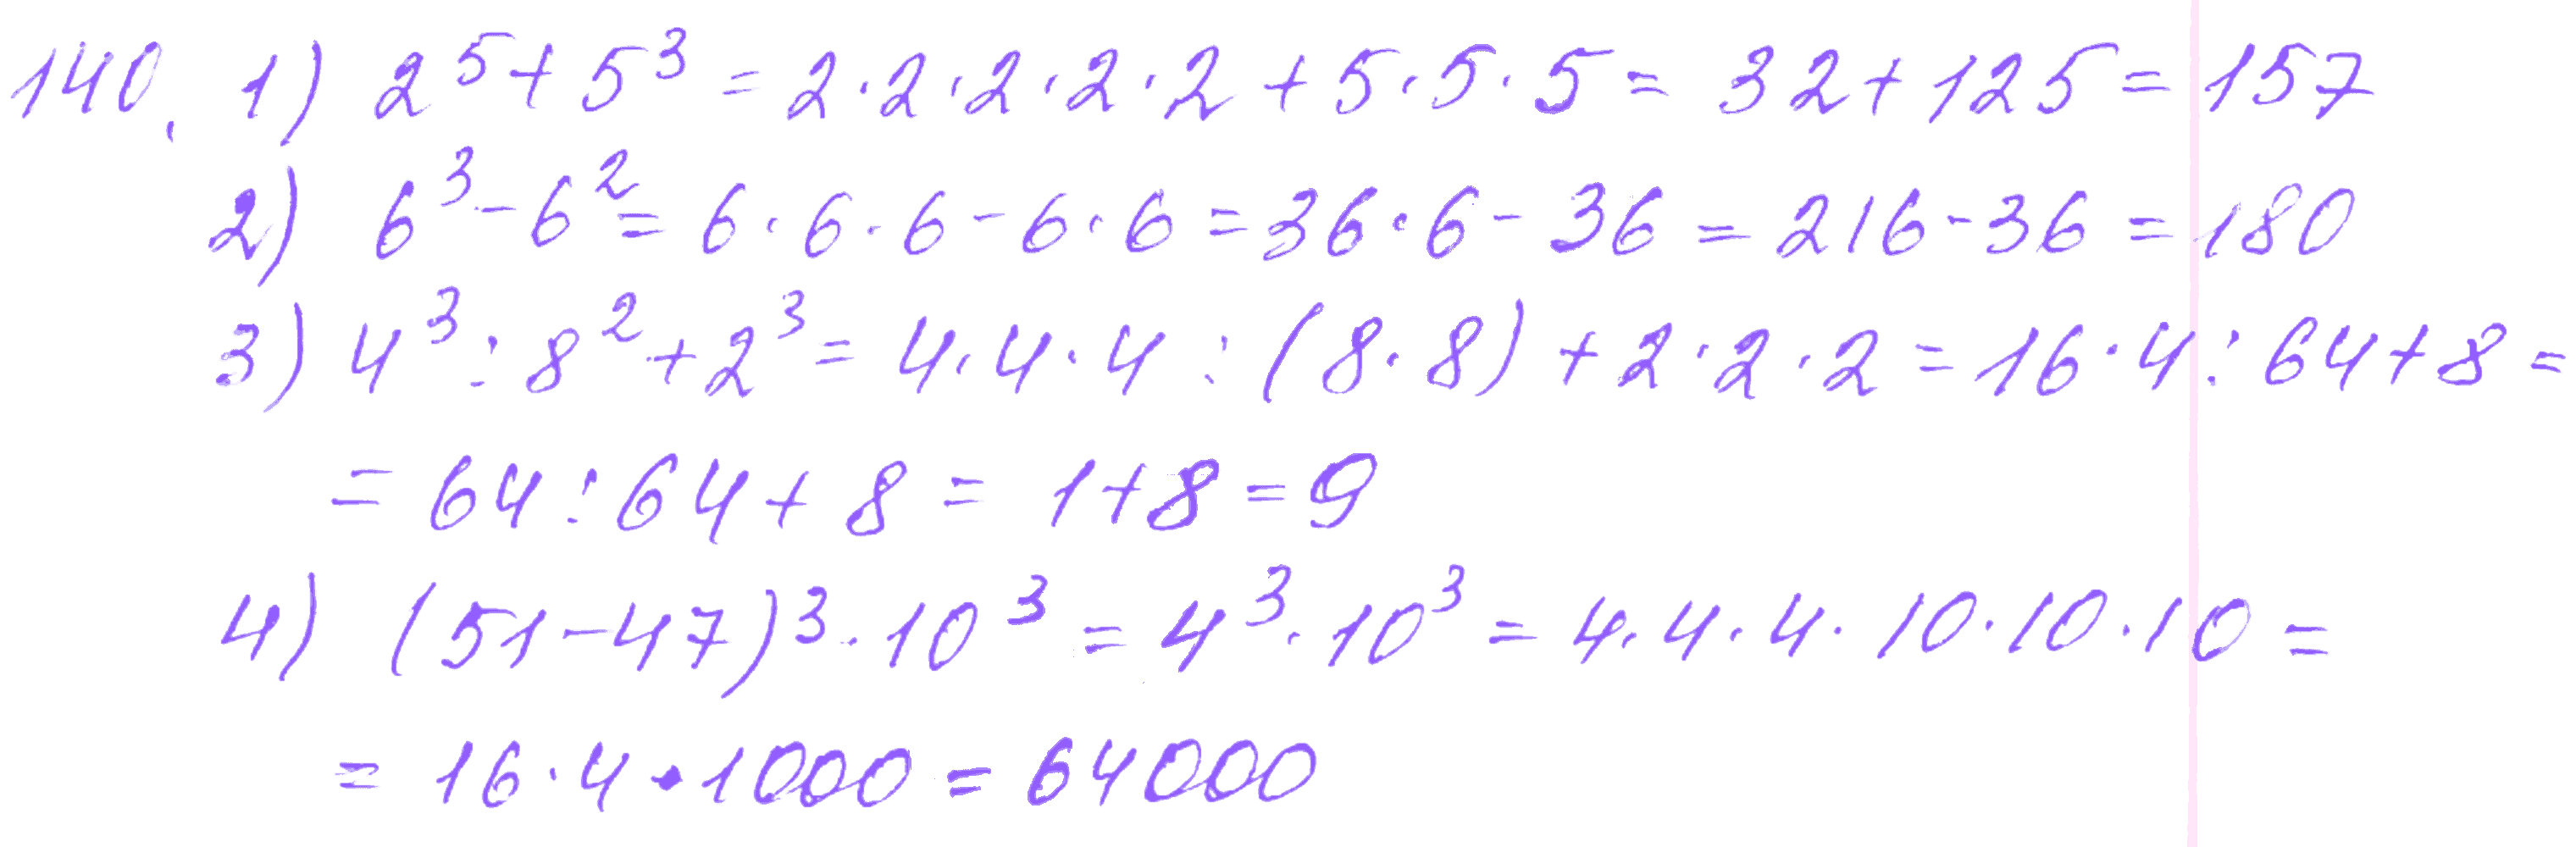 140. 1) 2⁵ + 5³ = 2 · 2 · 2 · 2 · 2 + 5 · 5 · 5 = 32 + 125 = 157
2) 6³ - 6² = 6 · 6 · 6 - 6 · 6 = 36 · 6 - 36 = 216 - 36 = 180
3) 4³ : 8² + 2³ = 4 · 4 · 4 : (8 · 8) + 2 · 2 · 2 = 16 · 4 : 64 + 8 =
= 64 : 64 + 8 = 1 + 8 = 9
4) (51 - 47)³ · 10³ = 4³ · 10³ = 4 · 4 · 4 · 10 · 10 · 10 =
= 16 · 4 · 1000 = 64000